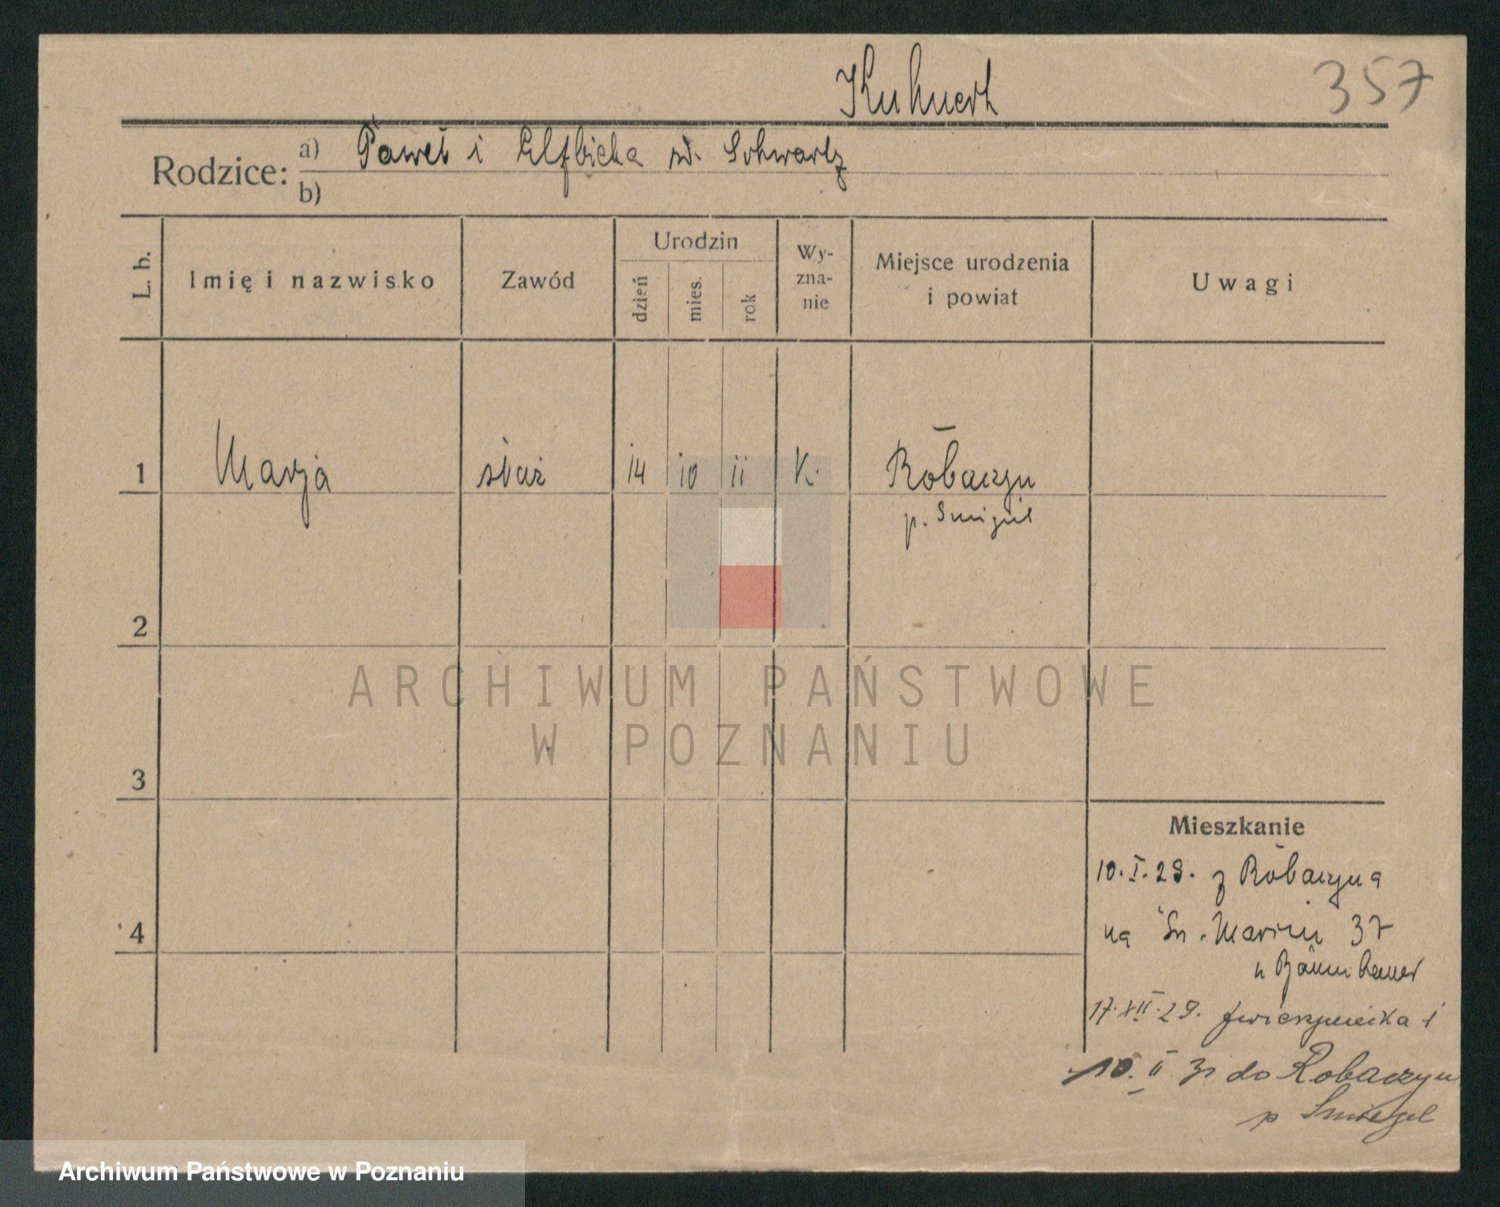 Kuhnert
357
Rodzice:
a) Paweł i Elżbieta zd. Schwartz
b)
L. b.
Imię i nazwisko
Zawód
Urodzin
dzień
mies.
rok
Wy-
zna-
nie
Miejsce urodzenia
i powiat
Uwagi
1 Marja służ 14 10 11 K. Robaczyn
p. Śmigiel
2
3
4
ARCHIWUM PAŃSTWOWE
W POZNANIU
Mieszkanie
10.I.29. z Robaczyna
na Św. Marcin 37
u
17.XII.29. Zwierzyniecka 1
10. II 31 do Robaczyn
p Śmigiel
Archiwum Państwowe w Poznaniu